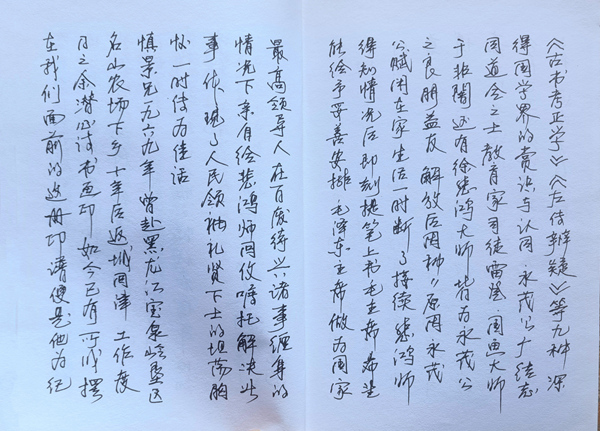 《古书考正学》《左传辨疑》等九种 深
得国学界的赏识与认同 永茂公广结志
同道合之士 教育家司徒雷登 国画大师
于非闇 还有徐悲鸿大师 皆为永茂公
之良朋益友 解放后因种〃原因永茂
公赋闲在家 生活一时断了持续 悲鸿师
得知情况后即刻提笔上书毛主席 希望
能给予妥善安排 毛泽东主席做为国家
最高领导人 在百废待兴 诸事缠身的
情况下亲自给悲鸿师回信嘱托解决此
事 体现了人民领袖礼贤下士的坦荡胸
怀 一时传为佳话
慎景兄一九六九年曾赴黑龙江宝泉岭垦区
名山农场下乡 十年后返城回津 工作度
日之余潜心诗书画印 如今已有所成 摆
在我们面前的这册印谱便是他为纪